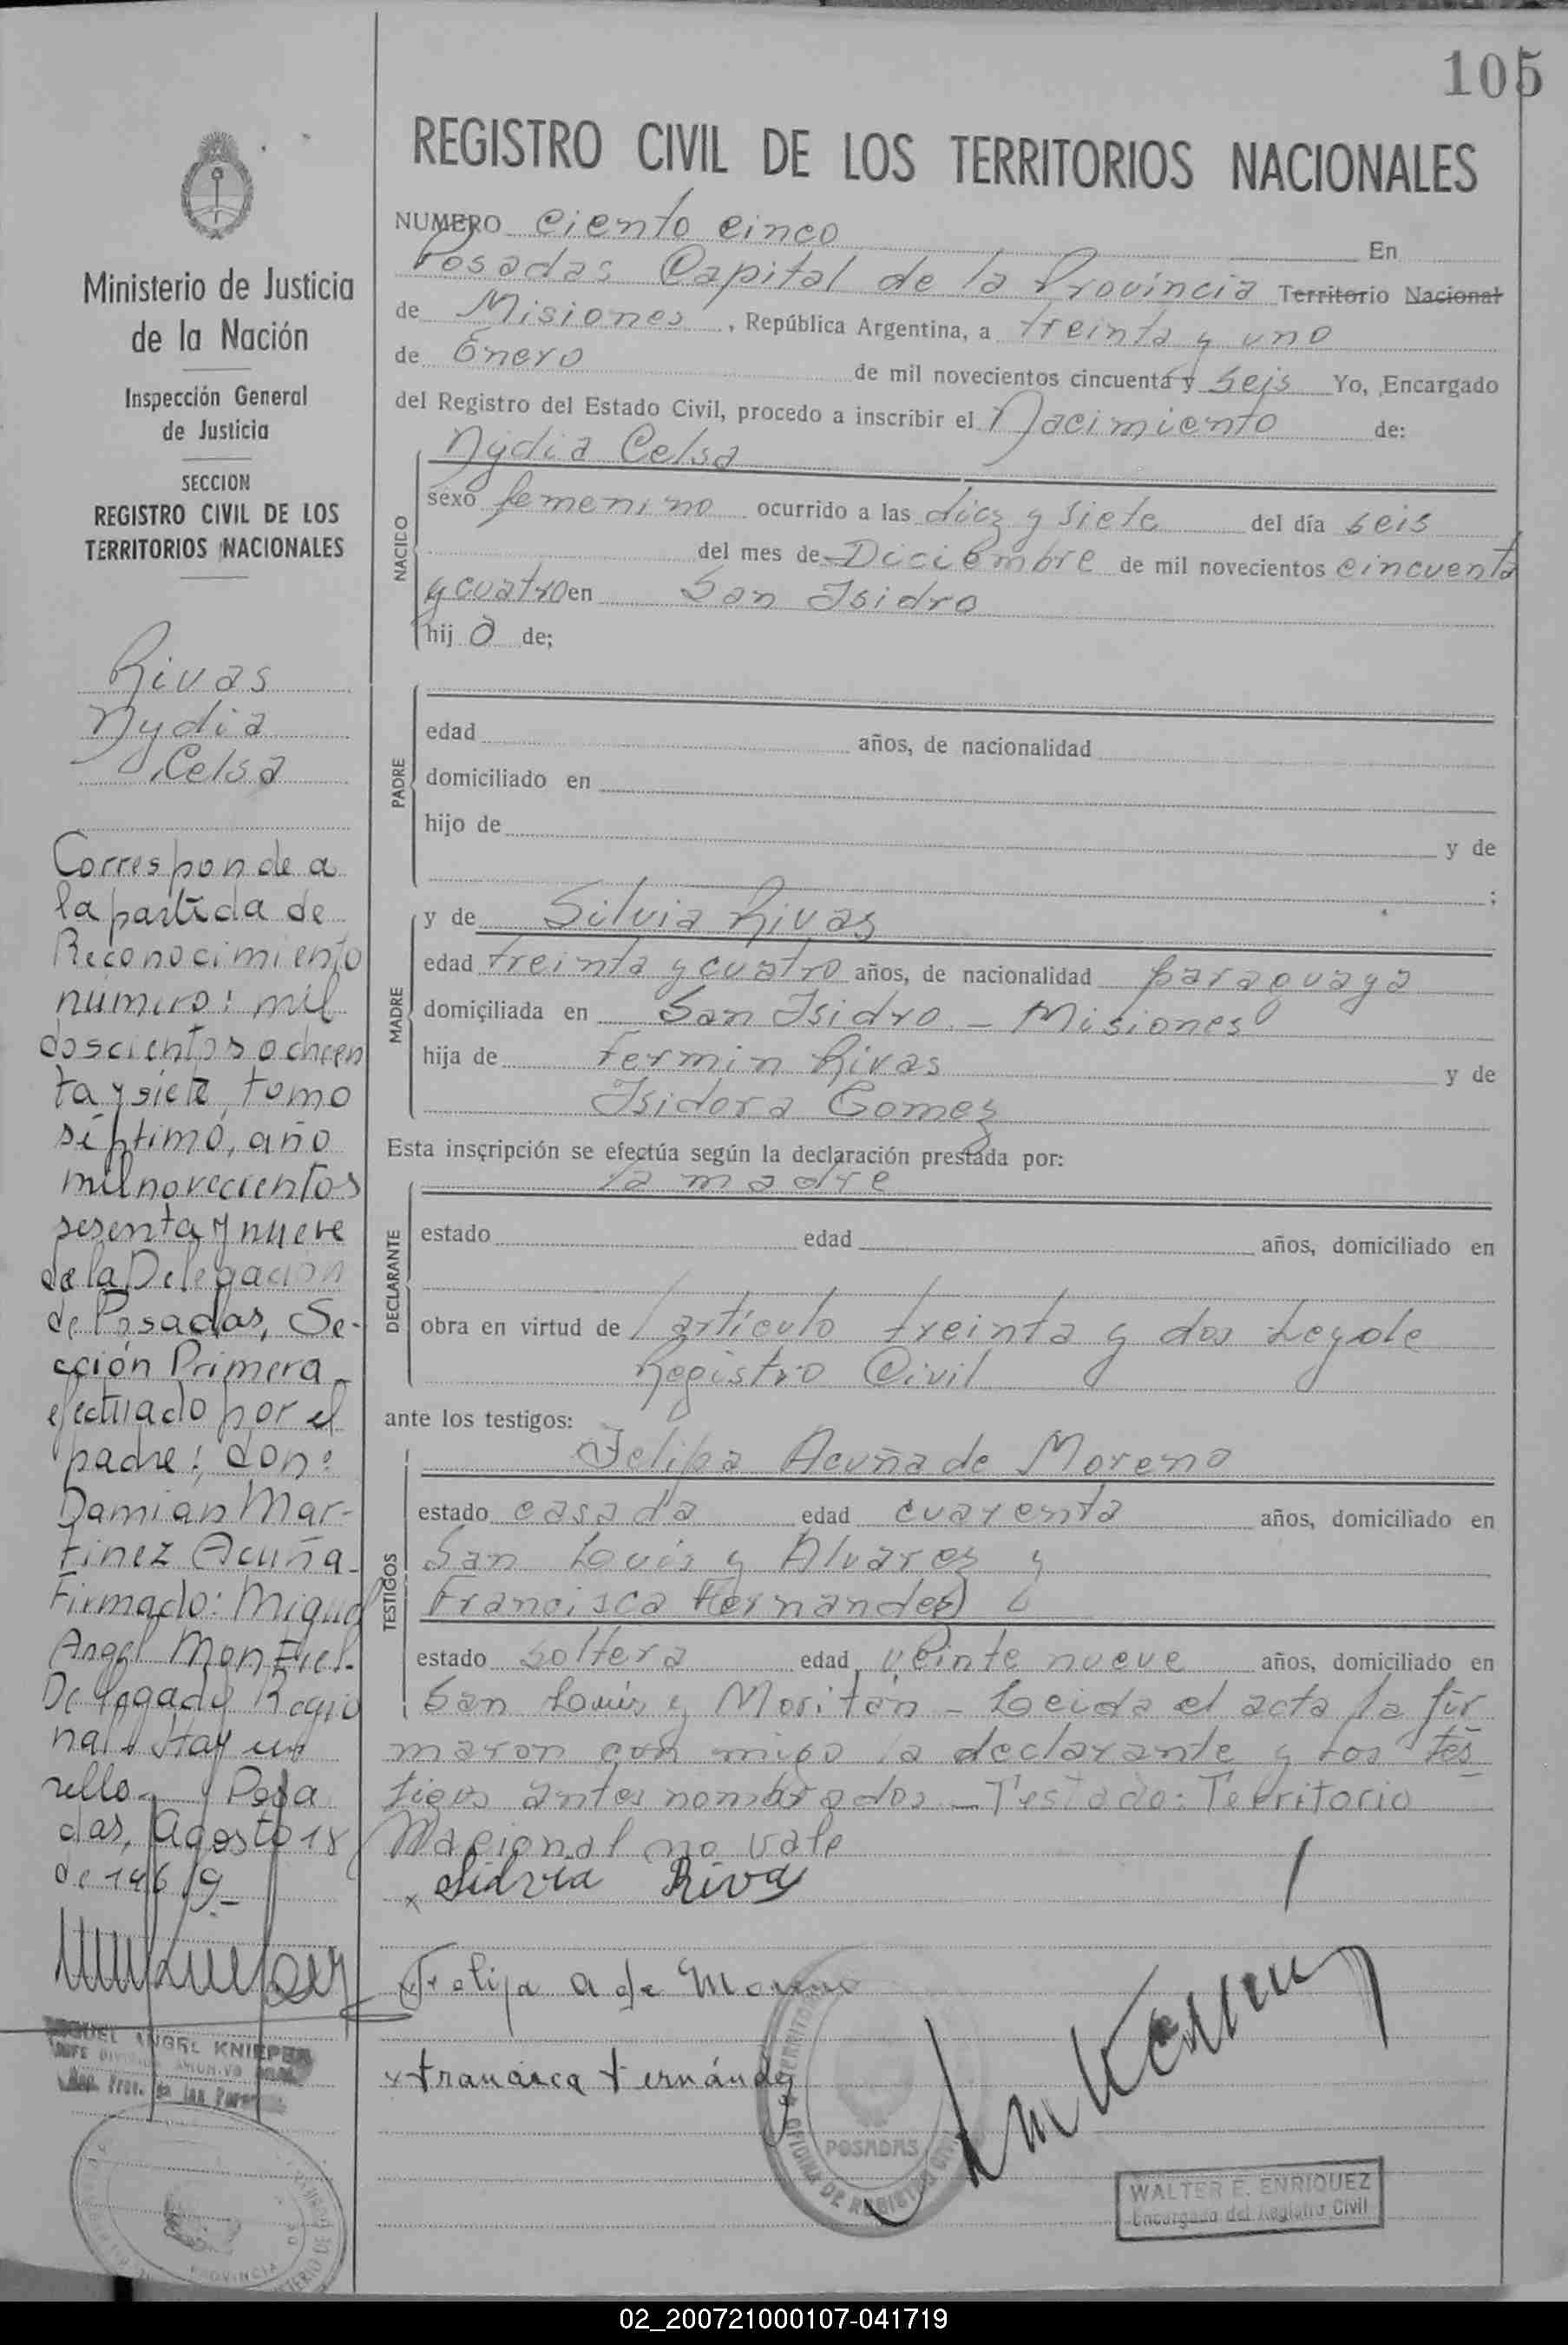 105
REGISTRO CIVIL DE LOS TERRITORIOS NACIONALES
NUMERO ciento cinco En
Posadas Capital de la Provincia Territorio Nacional
de Misiones, República Argentina, a treinta y uno
de Enero de mil novecientos cincuenta y seis Yo, Encargado
del Registro del Estado Civil, procedo a inscribir el Nacimiento de:
NACIDO
Nydia Celsa
sexo femenino ocurrido a las diez y siete del día seis
del mes de Diciembre de mil novecientos cincuenta
y cuatro en San Isidro
hij a de;
PADRE
edad años, de nacionalidad
domiciliado en
hijo de y de
;
MADRE
y de Silvia Rivas
edad treinta y cuatro años, de nacionalidad paraguaya
domiciliada en San Isidro - Misiones
hija de Fermin Rivas y de
Isidora Gomez
Esta inscripción se efectúa según la declaración prestada por:
DECLARANTE
la madre
estado edad años, domiciliado en
obra en virtud de artículo treinta y dos Ley de
Registro Civil
ante los testigos:
TESTIGOS
Felipa Acuña de Moreno
estado casada edad cuarenta años, domiciliado en
San Louis y Alvarez y
Francisca Hernandez
estado soltera edad veinte nueve años, domiciliado en
San Louis y Moritán - Leida el acta la fir
maron con migo la declarante y los tes
tigos antes nombrados - Testado: Territorio
Nacional no vale
x Silvia Rivas
x Felipa A de Moreno
x Francisca Fernández
OFICINA DE REGISTRO CIVIL
POSADAS
WALTER E. ENRIQUEZ
Encargado del Registro Civil
Ministerio de Justicia
de la Nación
Inspección General
de Justicia
SECCION
REGISTRO CIVIL DE LOS
TERRITORIOS NACIONALES
Rivas
Nydia
Celsa
Corresponde a
la partida de
Reconocimiento
número: mil
doscientos ochen
ta y siete, tomo
séptimo, año
mil novecientos
sesenta y nueve
de la Delegación
de Posadas, Se-
cción Primera
efectuado por el
padre: don:
Damian Mar-
tinez Acuña.
Firmado: Miguel
Angel Montiel.
Delegado Regio
nal. Hay un
sello. Posa
das, Agosto 18
de 1969.-
MIGUEL ANGEL KNIEPER
PROVINCIA
02_200721000107-041719